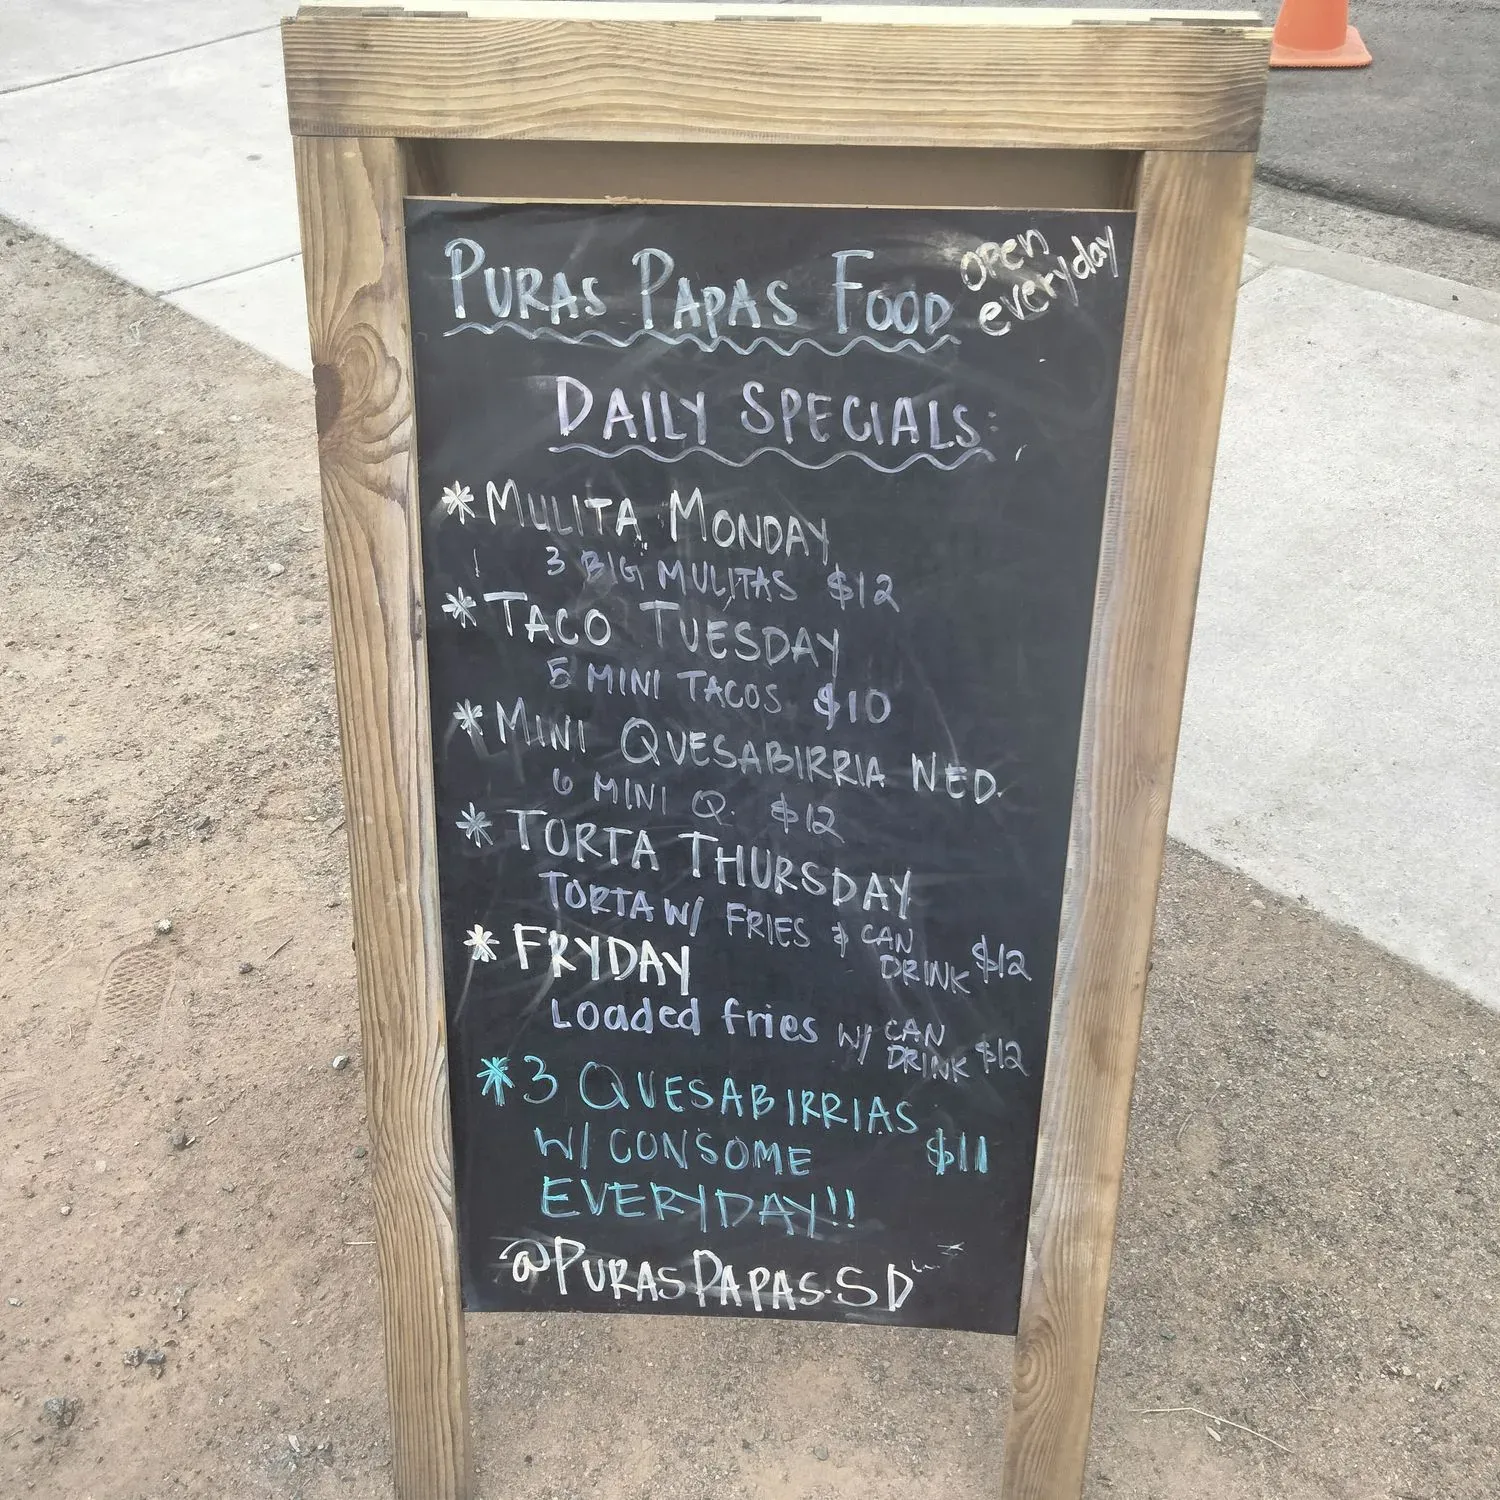 PURAS PAPAS FOOD
open
everyday
DAILY SPECIALS:
* MULITA MONDAY
3 BIG MULITAS $12
* TACO TUESDAY
5 MINI TACOS $10
* MINI QUESABIRRIA WED.
6 MINI Q. $12
* TORTA THURSDAY
TORTA W/ FRIES & CAN DRINK $12
* FRYDAY
Loaded fries W/ CAN DRINK $12
* 3 QUESABIRRIAS
W/ CONSOME $11
EVERYDAY!!
@PURASPAPAS.SD